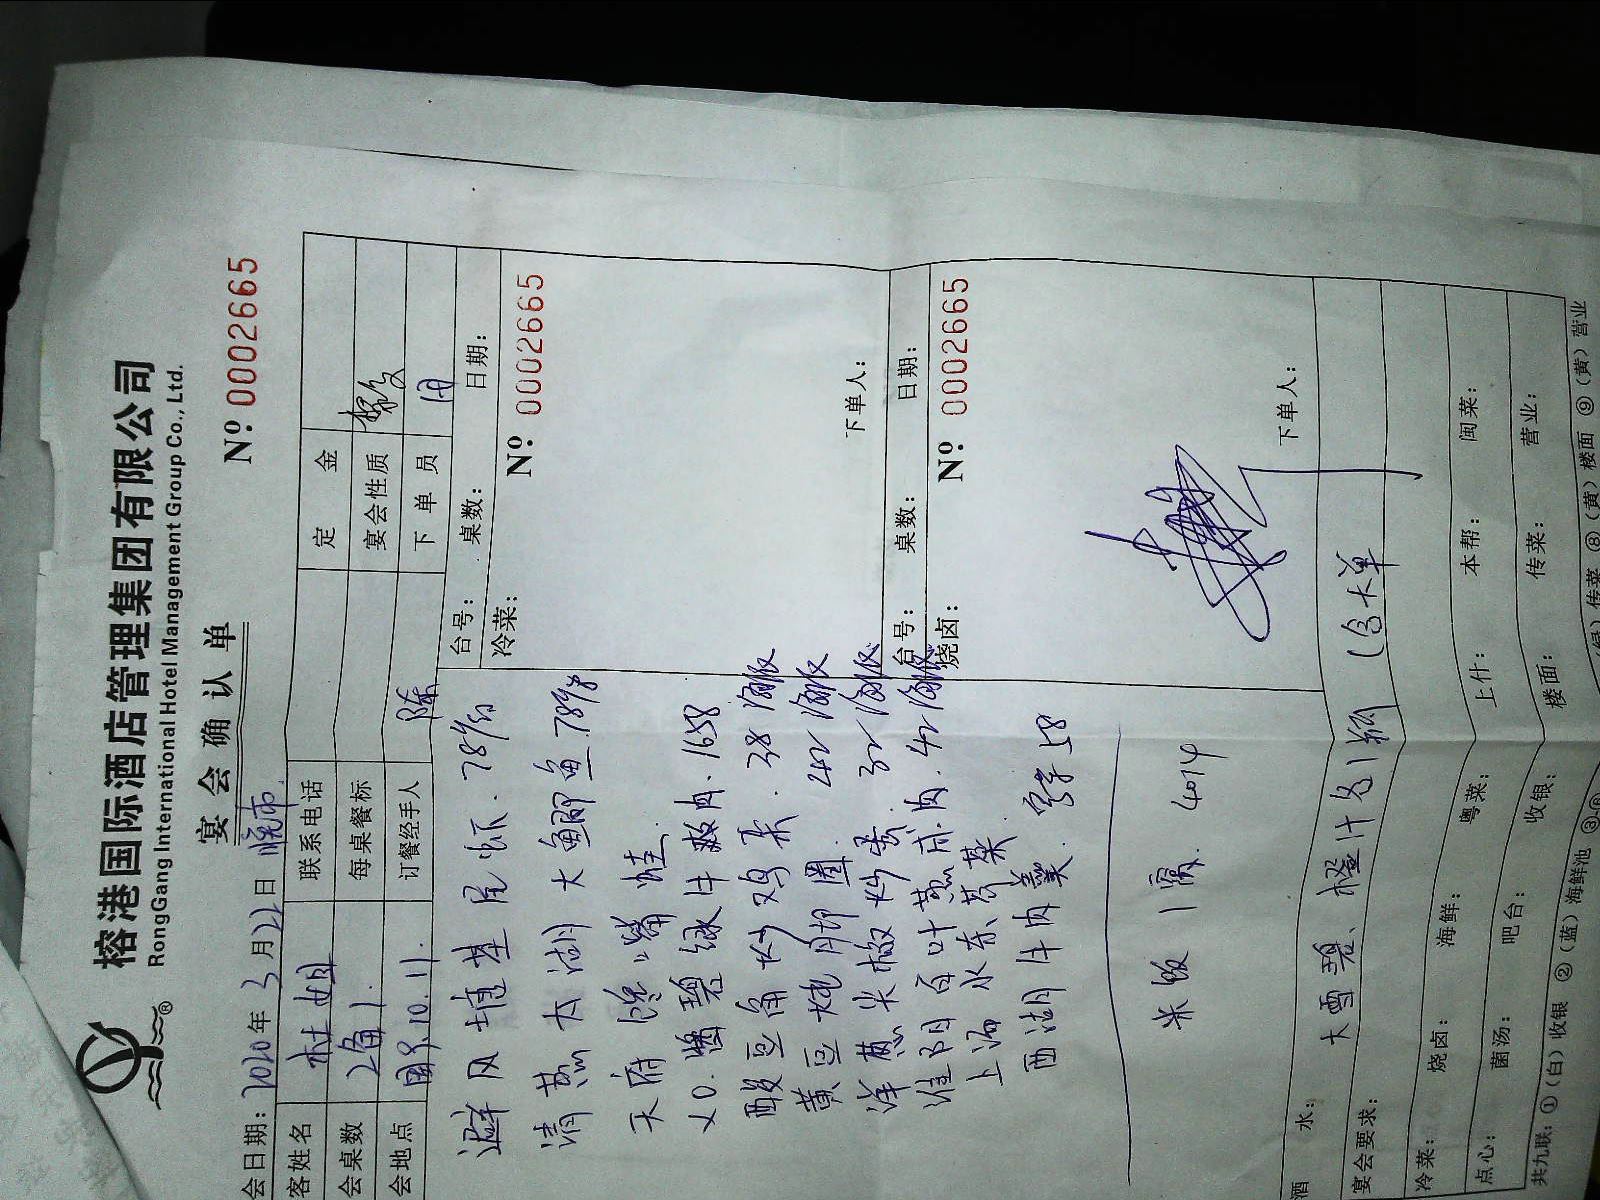 榕港国际酒店管理集团有限公司
RongGang International Hotel Management Group Co., Ltd.
宴会确认单
Nº: 0002665
会日期: 2020年3月22日 晚市
客姓名 联系电话 定金
会桌数 2备1 每桌餐标 宴会性质
会地点 10.11. 订餐经手人 陈 下单员
台号: 桌数: 日期:
冷菜: Nº: 0002665
避风塘基尾虾. 78/
清蒸太湖大鮰鱼. 78/
天府馋嘴蛙.
XO.酱碧绿牛爽肉. 168
酸豆角炒鸡杂. 38
黄豆炖脚圈. 42
洋葱尖椒炒蛋. 32
淮阳百叶蒸咸肉. 42
上海水东芥菜
西湖牛肉羹. 58
下单人:
台号: 桌数: 日期:
烧卤: Nº: 0002665
米饭1窝. 4014
下单人:
酒水: 大雪碧、橙汁各1瓶 (含大单
宴会要求:
冷菜: 烧卤: 海鲜: 粤菜: 上什: 本帮: 闽菜:
点心: 菌汤: 吧台: 收银: 楼面: 传菜: 营业:
共九联: ①(白)收银 ②(蓝)海鲜池 ③ 传菜 ⑧(黄)楼面 ⑨(黄)营业